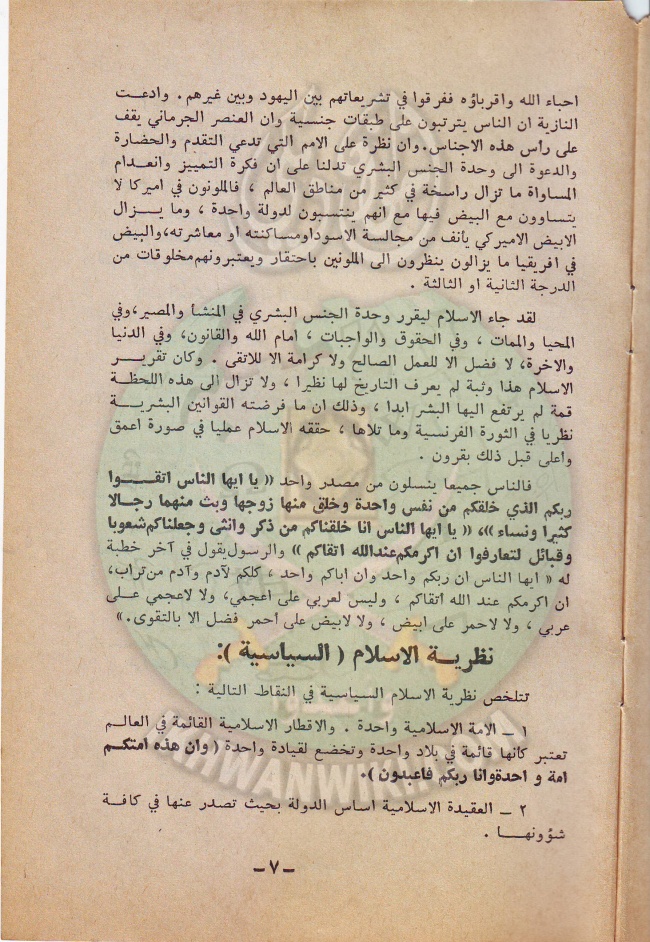 احباء الله واقرباؤه ففرقوا في تشريعاتهم بين اليهود وبين غيرهم . وادعت
النازية ان الناس يترتبون على طبقات جنسية وان العنصر الجرماني يقف
على رأس هذه الاجناس.وان نظرة على الامم التي تدعي التقدم والحضارة
والدعوة الى وحدة الجنس البشري تدلنا على ان فكرة التمييز وانعدام
المساواة ما تزال راسخة في كثير من مناطق العالم ، فالملونون في اميركا لا
يتساوون مع البيض فيها مع انهم ينتسبون لدولة واحدة ، وما يــزال
الابيض الاميركي يأنف من مجالسة الاسوداومساكنته او معاشرته،والبيض
في افريقيا ما يزالون ينظرون الى الملونين باحتقار ويعتبرونهم‌مخلوقات من
الدرجة الثانية او الثالثة .
لقد جاء الاسلام ليقرر وحدة الجنس البشري في المنشأ والمصير،وفي
المحيا والممات ، وفي الحقوق والواجبات ، امام الله والقانون، وفي الدنيا
والاخرة، لا فضل الا للعمل الصالح ولا كرامة الا للاتقى . وكان تقريــر
الاسلام هذا وثبة لم يعرف التاريخ لها نظيرا ، ولا تزال الى هذه اللحظة
قمة لم يرتفع اليها البشر ابدا ، وذلك ان ما فرضته القوانين البشريــة
نظريا في الثورة الفرنسية وما تلاها ، حققه الاسلام عمليا في صورة اعمق
واعلى قبل ذلك بقرون .
فالناس جميعا ينسلون من مصدر واحد (( يا ايها الناس اتقــوا
ربكم الذي خلقكم من نفس واحدة وخلق منها زوجها وبث منهما رجـالا
كثيرا ونساء ))، (( يا ايها الناس انا خلقناكم من ذكر وانثى وجعلناكم‌شعوبا
وقبائل لتعارفوا ان اكرمكم‌عندالله اتقاكم )) والرسول‌يقول في آخر خطبة
له « ايها الناس ان ربكم واحد وان اباكم واحد ، كلكم لآدم وآدم من‌تراب،
ان اكرمكم عند الله اتقاكم ، وليس لعربي على اعجمي، ولا لاعجمي علــى
عربي ، ولا لاحمر على ابيض ، ولا لابيض على احمر فضل الا بالتقوى.»
نظريــة الاسلام ( السـياسية ):
تتلخص نظرية الاسلام السياسية في النقاط التالية :
١ ــ الامة الاسلامية واحدة . والاقطار الاسلامية القائمة في العالــم
تعتبر كأنها قائمة في بلاد واحدة وتخضع لقيادة واحدة ( وان هذه امتكــم
امة و احدةوانا ربكم فاعبدون ).
٢ ــ العقيدة الاسلامية اساس الدولة بحيث تصدر عنها في كافــة
شؤونهــا .
ــ ٧ ــ